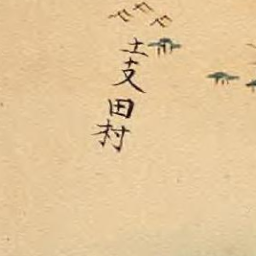 土支田村